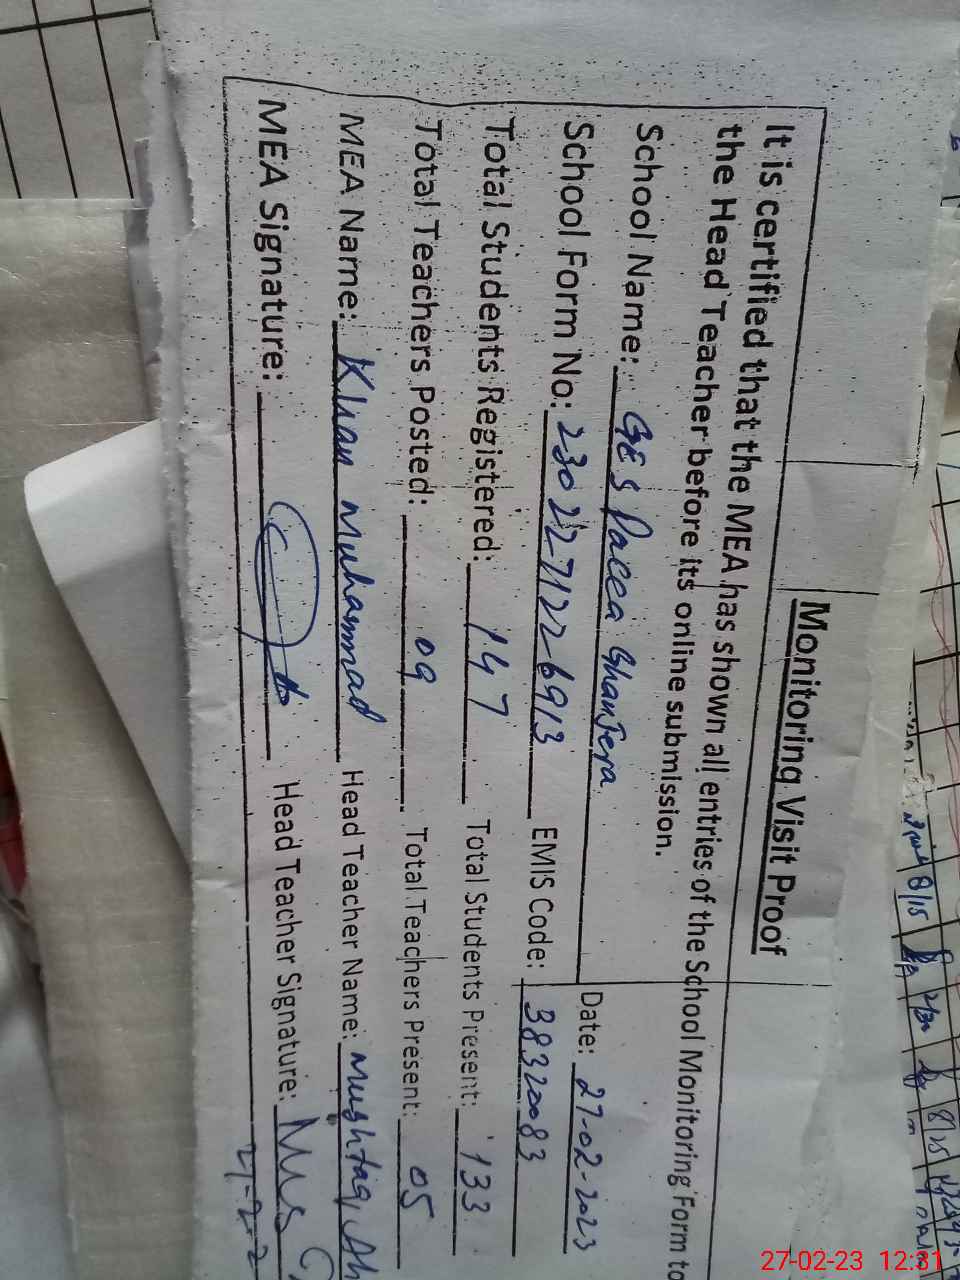 Monitoring Visit Proof
It is certified that the MEA has shown all entries of the School Monitoring Form to
the Head Teacher before its online submission.
School Name: GES Pacca Ghanjera Date: 27-02-2023
School Form No: 2302271226913 EMIS Code: 38320083
Total Students Registered: 147 Total Students Present: 133
Total Teachers Posted: 09 Total Teachers Present: 05
MEA Name: Khan Muhammad Head Teacher Name: Mushtaq Ah
MEA Signature: Head Teacher Signature: Mus
8/15
27-02-23 12:31